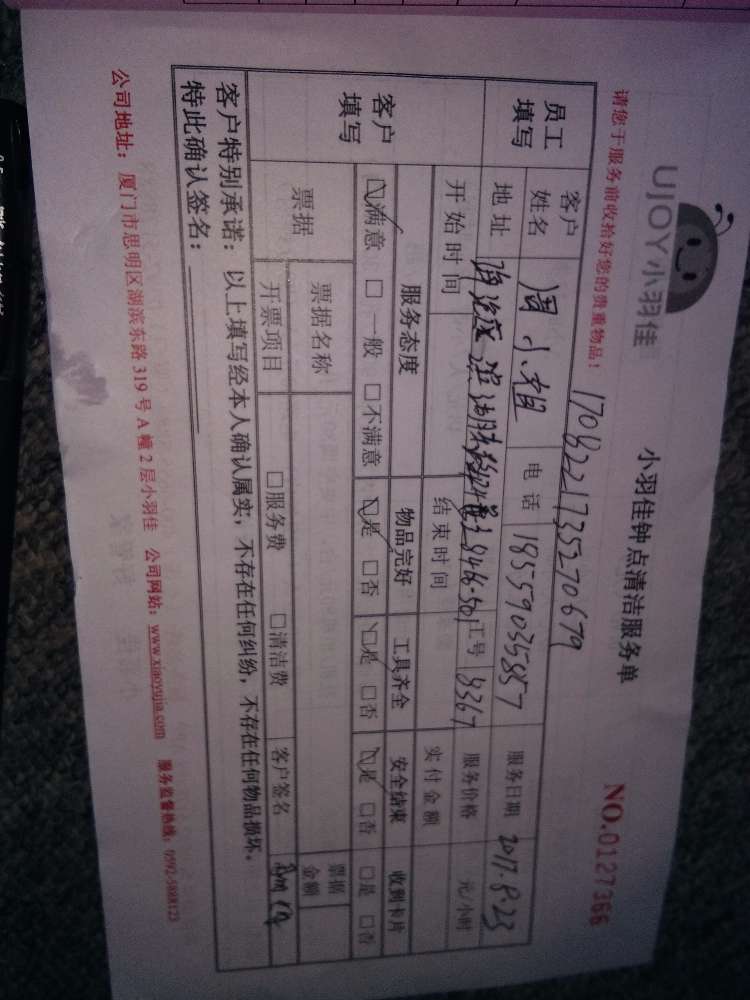 UJOY小羽佳
小羽佳钟点清洁服务单
NO.0127366
请您于服务前收拾好您的贵重物品！
1708221735270679
员工填写
客户姓名 周小姐 电话 18559035857 服务日期 2017.8.23
地址 滨湖 工号 8367 服务价格 元/小时
开始时间 结束时间 实付金额
客户填写
服务态度 物品完好 工具齐全 安全结束 收到卡片
☑满意 □一般 □不满意 ☑是 □否 ☑是 □否 ☑是 □否 □是 □否
票据 票据名称 票据金额
开票项目 □服务费 □清洁费 客户签名
客户特别承诺：以上填写经本人确认属实，不存在任何纠纷，不存在任何物品损坏。
特此确认签名：
公司地址：厦门市思明区湖滨东路319号A幢2层小羽佳 公司网站：www.xiaoyujia.com 服务监督热线：0592-5888123